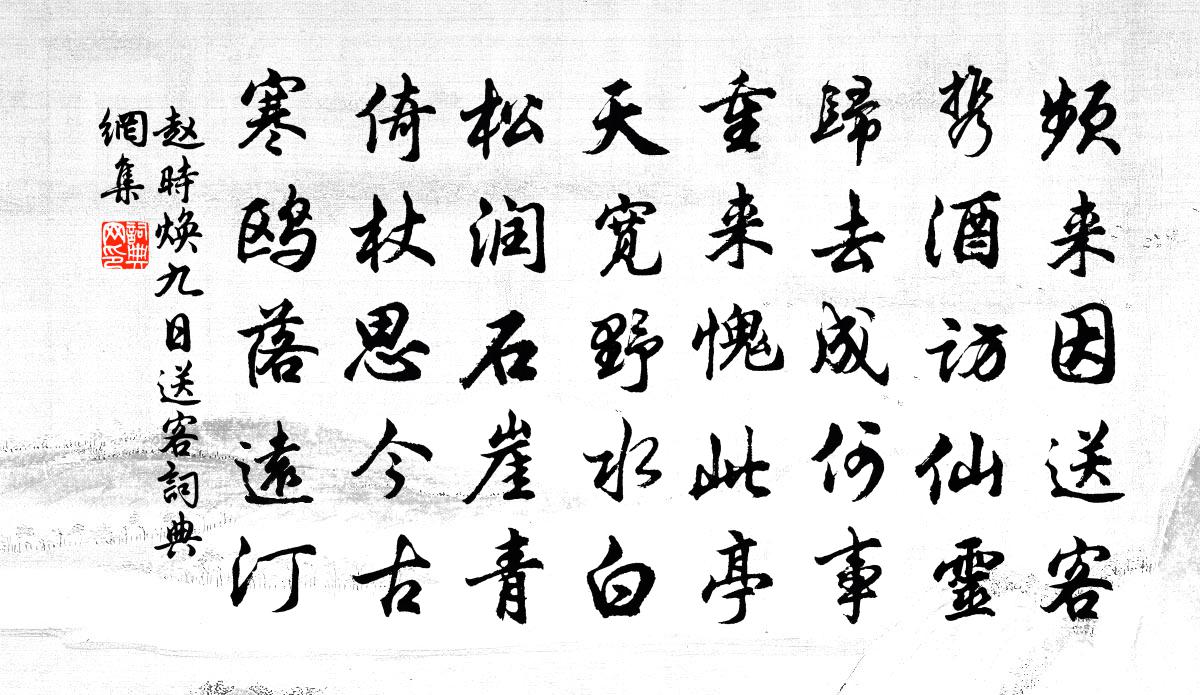 频来因送客
携酒访仙靈
歸去成何事
重来愧此亭
天宽野水白
松润石崖青
倚杖思今古
寒鸥落遠汀
赵時焕九日送客詞典
網集
詞典
网印